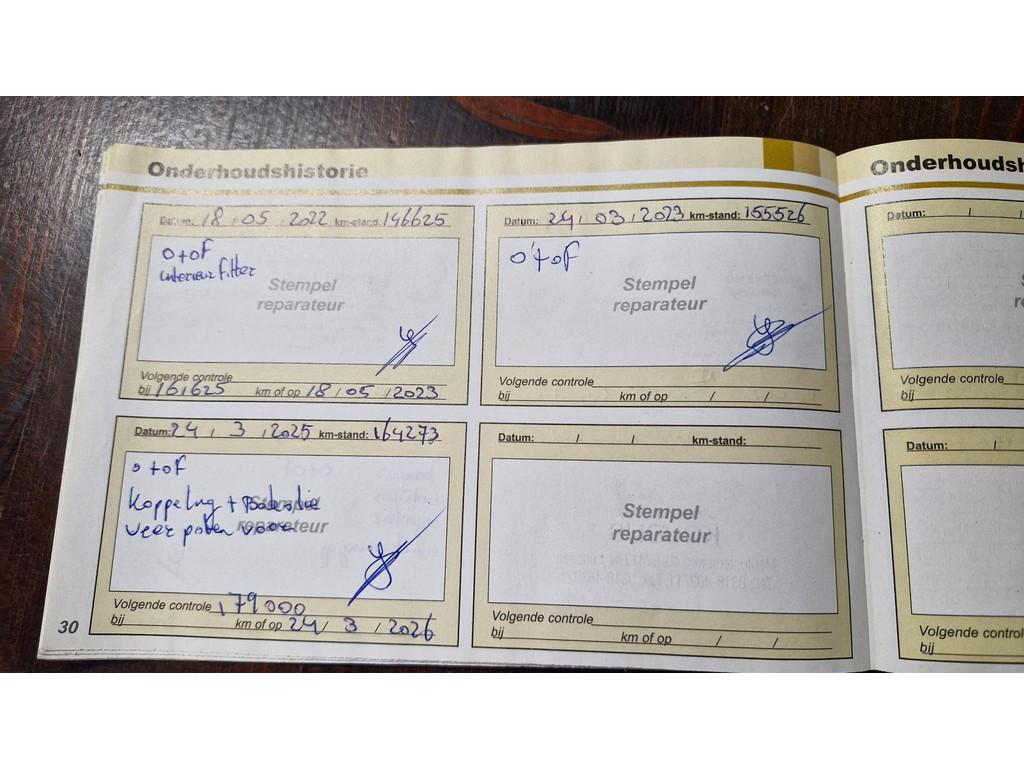 Onderhoudshistorie
Datum: 18 / 05 / 2022 km-stand: 146625
o+oF
interieur filter
Stempel
reparateur
Volgende controle
bij 161625 km of op 18 / 05 / 2023
Datum: 24 / 03 / 2023 km-stand: 155526
o+oF
Stempel
reparateur
Volgende controle
bij km of op / /
Datum: 24 / 3 / 2025 km-stand: 164273
o+oF
Koppeling +
Stempel
veer poten voor
reparateur
Volgende controle 179000
bij km of op 24 / 3 / 2026
Datum: / / km-stand:
Stempel
reparateur
Volgende controle
bij km of op / /
30
Datum: / /
Volgende
bij
Datum: /
Volgende
bij